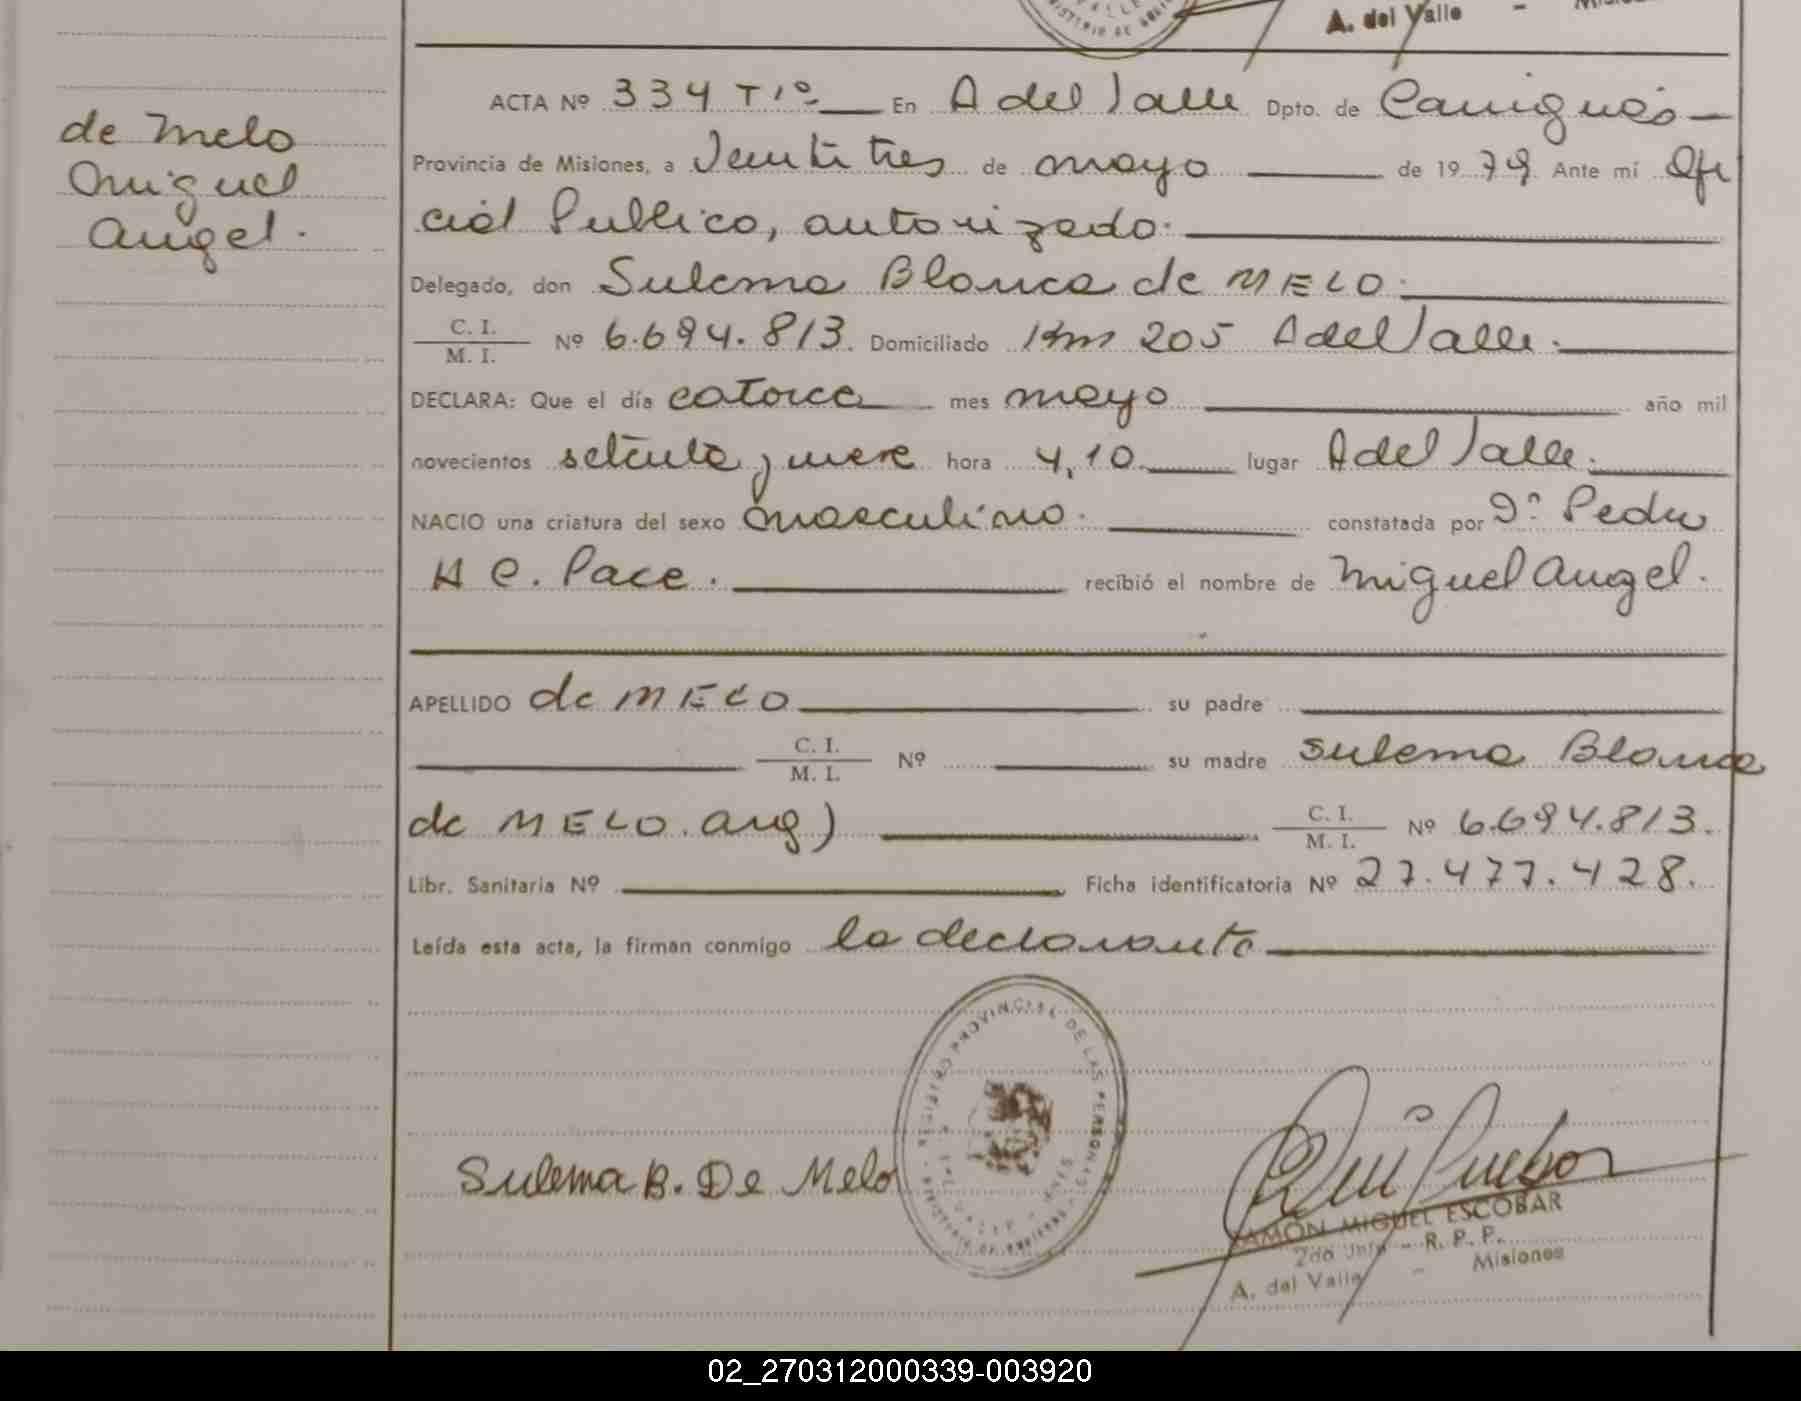 A. del Valle -
de Melo
Miguel
Angel.
ACTA Nº 334 Tº 1º En A del Valle Dpto. de Cainguás
Provincia de Misiones, a Veintitres de mayo de 1979 Ante mí Ofi
cial Publico, autorizado.
Delegado, don Sulema Blanca de MELO.
C. I.
M. I. Nº 6.694.813. Domiciliado Km 205 A del Valle.
DECLARA: Que el día catorce mes mayo año mil
novecientos setenta y nueve hora 4,10 lugar A del Valle.
NACIO una criatura del sexo masculino. constatada por Dº Pedro
H C. Pace. recibió el nombre de Miguel Angel.
APELLIDO de MELO su padre
C. I.
M. I. Nº su madre Sulema Blanca
de MELO. arg) C. I.
M. I. Nº 6.694.813.
Libr. Sanitaria Nº Ficha identificatoria Nº 27.477.428.
Leída esta acta, la firman conmigo la declarante
PROVINCIAL DE LAS PERSONAS
Sulema B. De Melo
RAMÓN MIGUEL ESCOBAR
2do - R. P. P.
A. del Valle - Misiones
02_270312000339-003920